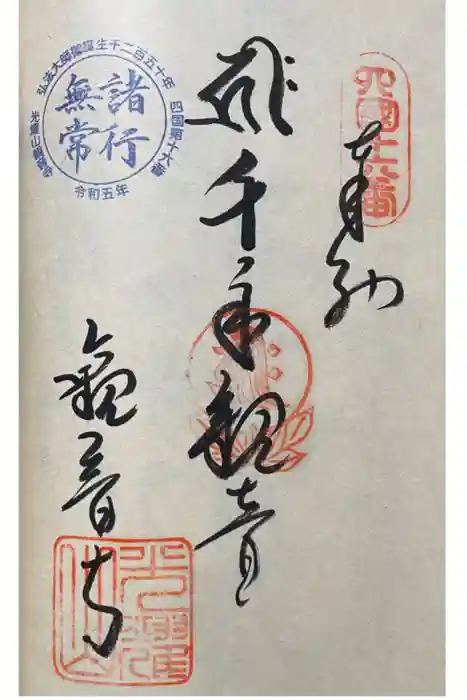 四國十六番
奉納
千手観音
観音寺
弘法大師御誕生千二百五十年
四国第十六番
諸行
無常
光耀山観音寺
令和五年